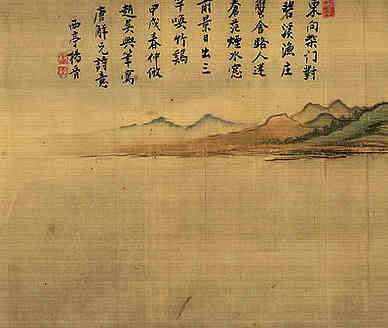 東向柴门對
碧溪漁庄
蟹舍路人迷
煙水窓
前景日出三
竿喚竹鷄
甲戌春仲倣
趙吳興筆寫
唐解元詩意
西亭楊晋